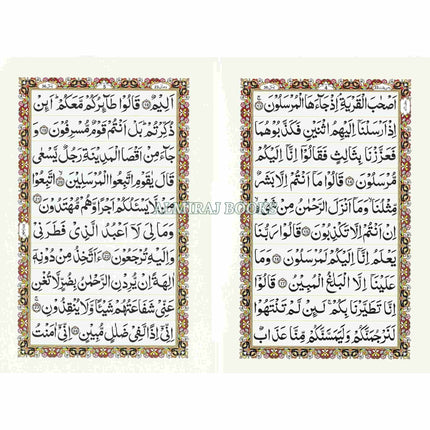 اَصْحٰبَ الْقَرْيَةِ اِذْ جَآءَهَا الْمُرْسَلُوْنَ ۝۱۳
اِذْ اَرْسَلْنَاۤ اِلَيْهِمُ اثْنَيْنِ فَكَذَّبُوْهُمَا
فَعَزَّزْنَا بِثَالِثٍ فَقَالُوْۤا اِنَّاۤ اِلَيْكُمْ
مُّرْسَلُوْنَ ۝۱۴ قَالُوْا مَاۤ اَنْتُمْ اِلَّا بَشَرٌ
مِّثْلُنَا وَمَاۤ اَنْزَلَ الرَّحْمٰنُ مِنْ شَيْءٍ
اِنْ اَنْتُمْ اِلَّا تَكْذِبُوْنَ ۝۱۵ قَالُوْا رَبُّنَا
يَعْلَمُ اِنَّاۤ اِلَيْكُمْ لَمُرْسَلُوْنَ ۝۱۶ وَمَا
عَلَيْنَاۤ اِلَّا الْبَلٰغُ الْمُبِيْنُ ۝۱۷ قَالُوْۤا
اِنَّا تَطَيَّرْنَا بِكُمْ لَئِنْ لَّمْ تَنْتَهُوْا
لَنَرْجُمَنَّكُمْ وَلَيَمَسَّنَّكُمْ مِّنَّا عَذَابٌ
اَلِيْمٌ ۝۱۸ قَالُوْا طَآئِرُكُمْ مَّعَكُمْ اَئِنْ
ذُكِّرْتُمْ بَلْ اَنْتُمْ قَوْمٌ مُّسْرِفُوْنَ ۝۱۹ وَ
جَآءَ مِنْ اَقْصَا الْمَدِيْنَةِ رَجُلٌ يَّسْعٰى
قَالَ يٰقَوْمِ اتَّبِعُوا الْمُرْسَلِيْنَ ۝۲۰ اتَّبِعُوْا
مَنْ لَّا يَسْئَلُكُمْ اَجْرًا وَّهُمْ مُّهْتَدُوْنَ ۝۲۱
وَمَا لِيَ لَاۤ اَعْبُدُ الَّذِيْ فَطَرَنِيْ
وَاِلَيْهِ تُرْجَعُوْنَ ۝۲۲ ءَاَتَّخِذُ مِنْ دُوْنِهٖۤ
اٰلِهَةً اِنْ يُّرِدْنِ الرَّحْمٰنُ بِضُرٍّ لَّا تُغْنِ
عَنِّيْ شَفَاعَتُهُمْ شَيْئًا وَّلَا يُنْقِذُوْنِ ۝۲۳
اِنِّيْۤ اِذًا لَّفِيْ ضَلٰلٍ مُّبِيْنٍ ۝۲۴ اِنِّيْۤ اٰمَنْتُ
ALMIRAJ BOOKS